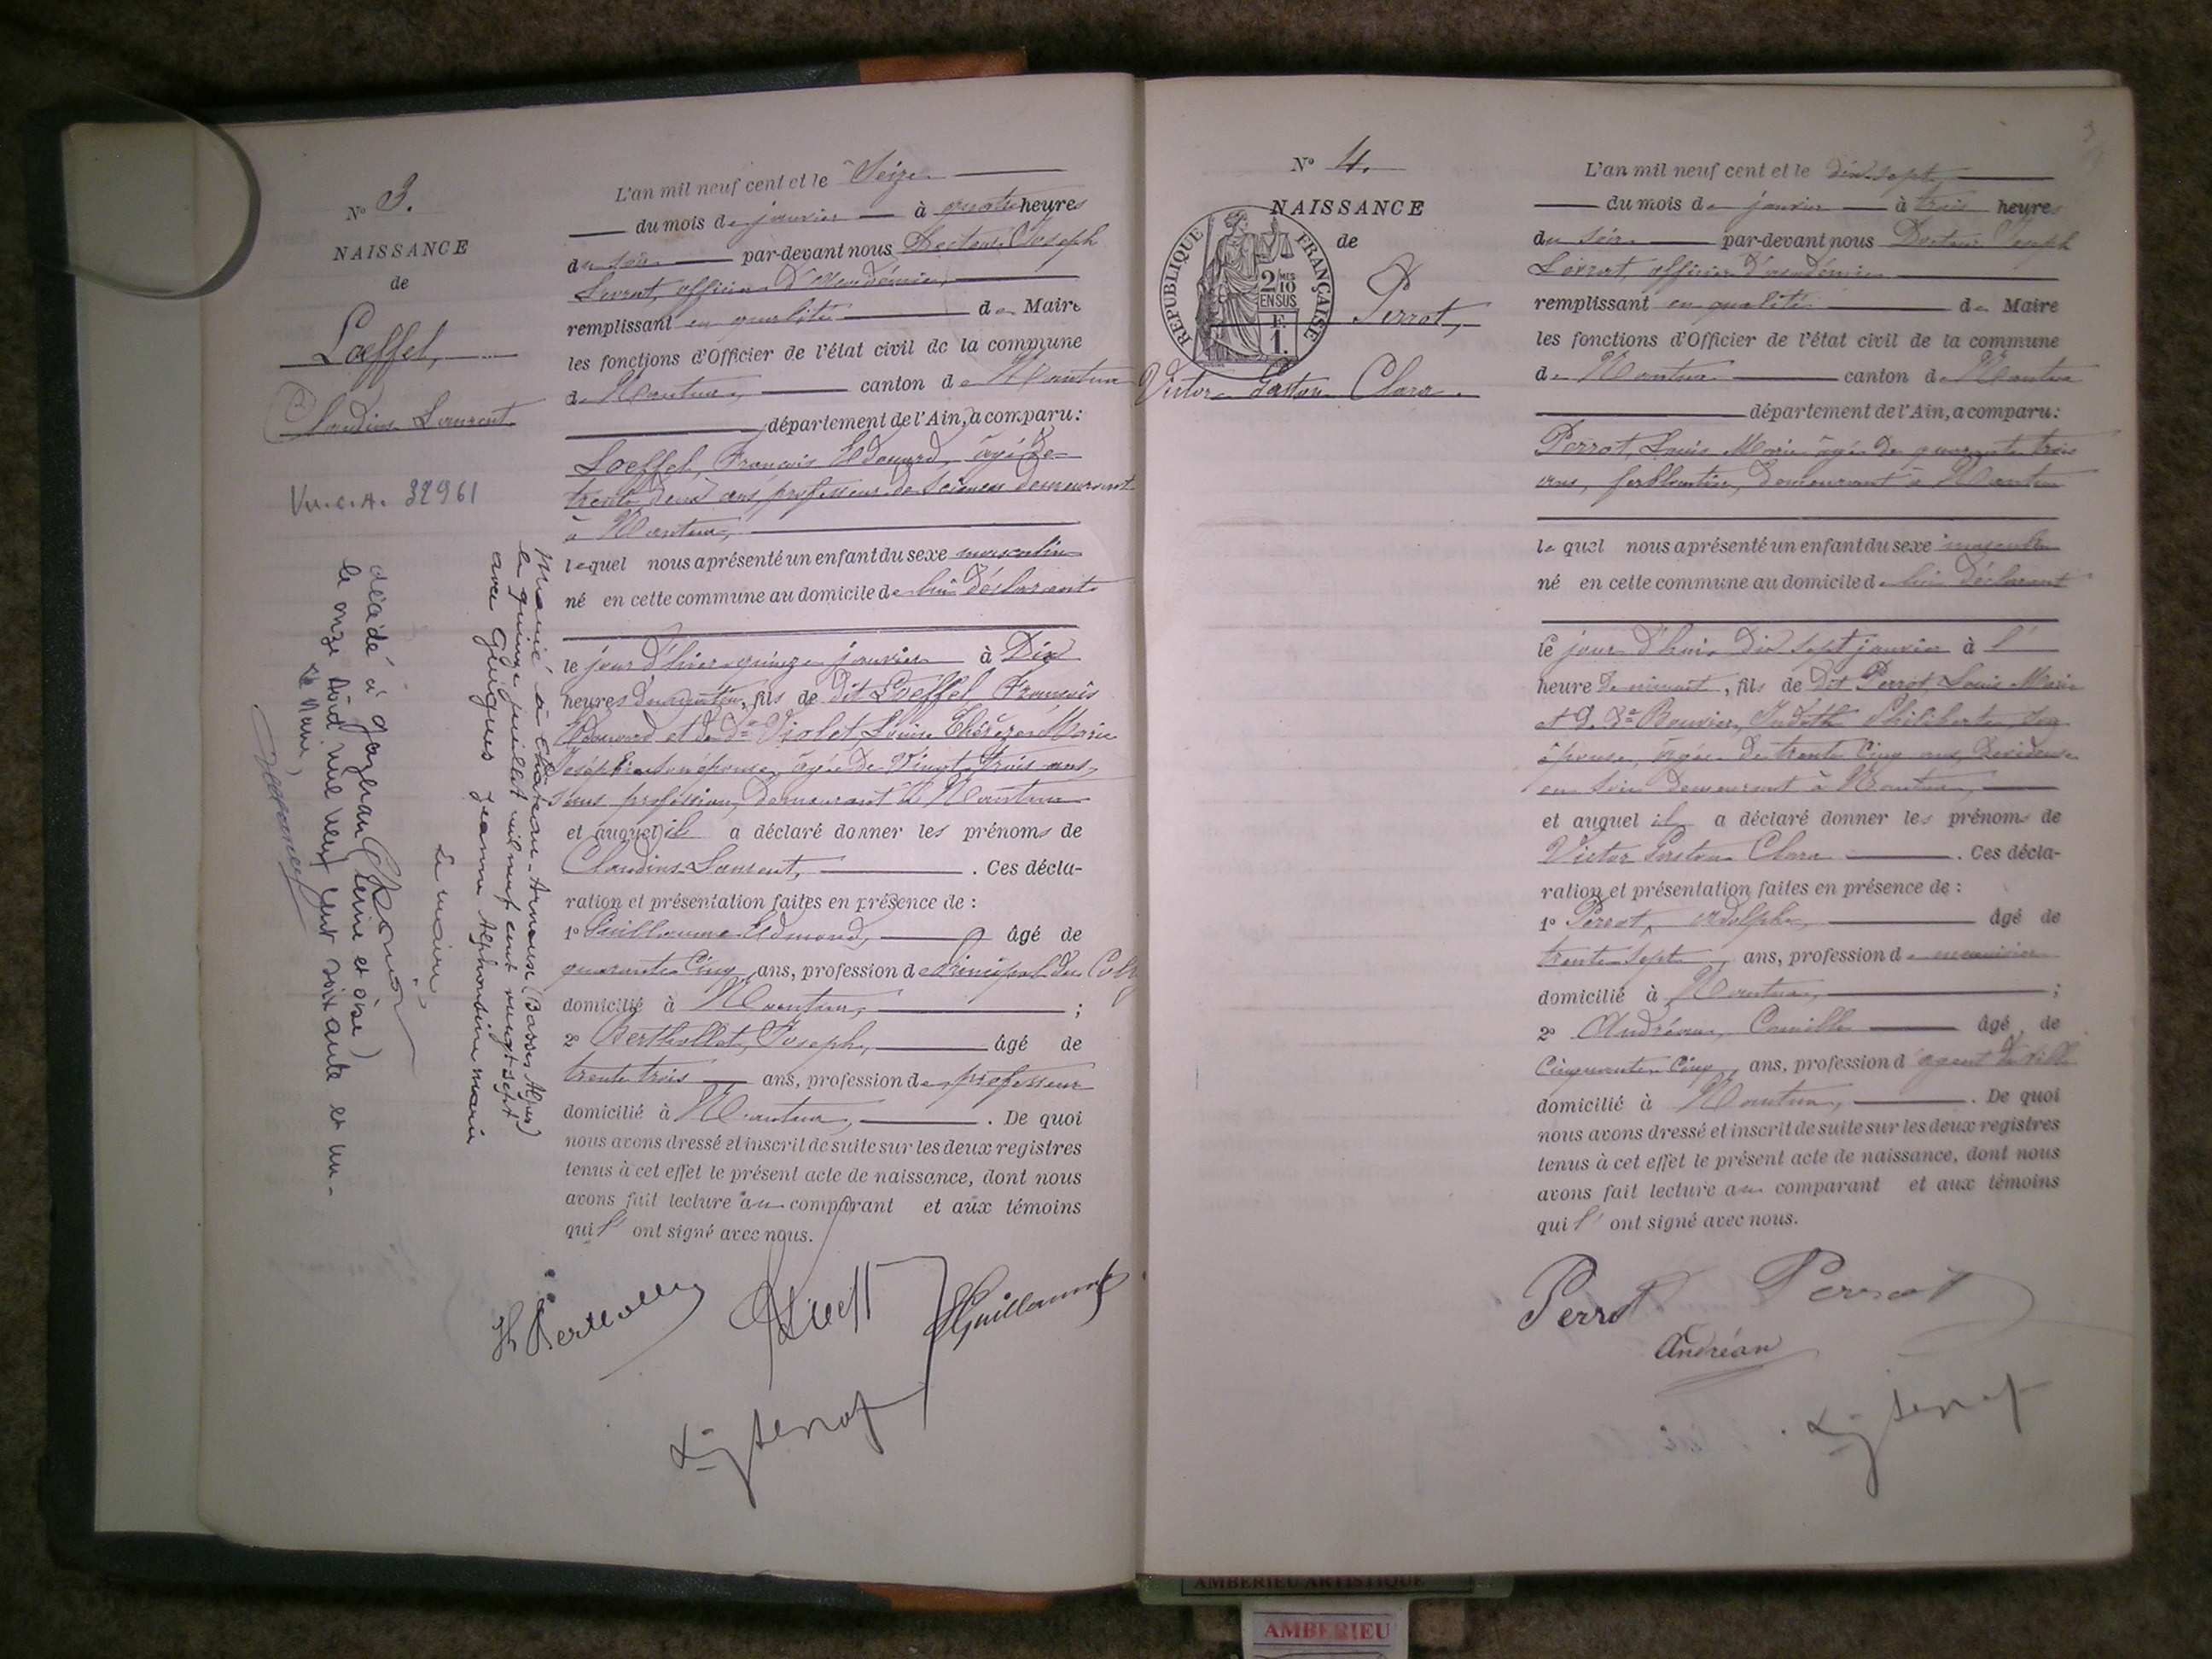 N° 3.
NAISSANCE
de
Loeffel,
Claudius Laurent.
V.u.c.A. 32961
L'an mil neuf cent et le Seize
du mois de janvier à quatre heures
du soir par-devant nous Docteur Joseph
Levrat, officier d'Académie,
remplissant en qualité de Maire
les fonctions d'Officier de l'état civil de la commune
de Nantua, canton de Nantua
département de l'Ain, a comparu:
Loeffel, François Edouard, âgé de
trente deux ans, professeur de Sciences demeurant
à Nantua,
lequel nous a présenté un enfant du sexe masculin
né en cette commune au domicile de lui déclarant
le jour d'hier quinze janvier à Dix
heures du matin, fils de dit Loeffel François
Edouard et de De Violet Louise Thérèse Marie
Joséphine son épouse, âgée de Vingt trois ans,
sans profession, demeurant à Nantua
et auquel il a déclaré donner les prénoms de
Claudius Laurent, . Ces décla-
ration et présentation faites en présence de :
1° Guillaume Edmond, âgé de
quarante Cinq ans, profession de Principal du Col
domicilié à Nantua, ;
2° Berthollet, Joseph, âgé de
trente trois ans, profession de professeur
domicilié à Nantua, . De quoi
nous avons dressé et inscrit de suite sur les deux registres
tenus à cet effet le présent acte de naissance, dont nous
avons fait lecture au comparant et aux témoins
qui l' ont signé avec nous.
Guillaume
Marié à Château-Arnoux (Basses Alpes)
le quinze juillet mil neuf cent vingt-sept
avec Gengues Jeanne Alphonsine Marie
Le maire
décédé à (Seine et Oise)
le onze août mil neuf cent soixante et un.
Le Maire,
N° 4.
NAISSANCE
de
Perrot,
Victor Gaston Clara.
REPUBLIQUE FRANÇAISE
2/10 MES
EN SUS
F.
1.
3
L'an mil neuf cent et le dix sept
du mois de janvier à trois heures
du soir par-devant nous Docteur Joseph
Levrat, officier d'académie
remplissant en qualité de Maire
les fonctions d'Officier de l'état civil de la commune
de Nantua canton de Nantua
département de l'Ain, a comparu:
Perrot, Louis Marie âgé de quarante trois
ans, ferblantier, demeurant à Nantua
lequel nous a présenté un enfant du sexe masculin
né en cette commune au domicile de lui déclarant
le jour d'hui Dix sept janvier à l'
heure de minuit, fils de dit Perrot, Louis Marie
et d. De Bouvier, Judith Philiberte, son
épouse, âgée de trente cinq ans, Devideuse
en soie demeurant à Nantua,
et auquel il a déclaré donner les prénoms de
Victor Gaston Clara . Ces décla-
ration et présentation faites en présence de :
1° Perrot, Adolphe, âgé de
trente sept ans, profession de menuisier
domicilié à Nantua, ;
2° Andréan, Camille âgé de
Cinquante Cinq ans, profession d'agent de Ville
domicilié à Nantua, . De quoi
nous avons dressé et inscrit de suite sur les deux registres
tenus à cet effet le présent acte de naissance, dont nous
avons fait lecture au comparant et aux témoins
qui l' ont signé avec nous.
Perrot Perrot
Andréan
AMBERIEU ARTISTIQUE
AMBERIEU